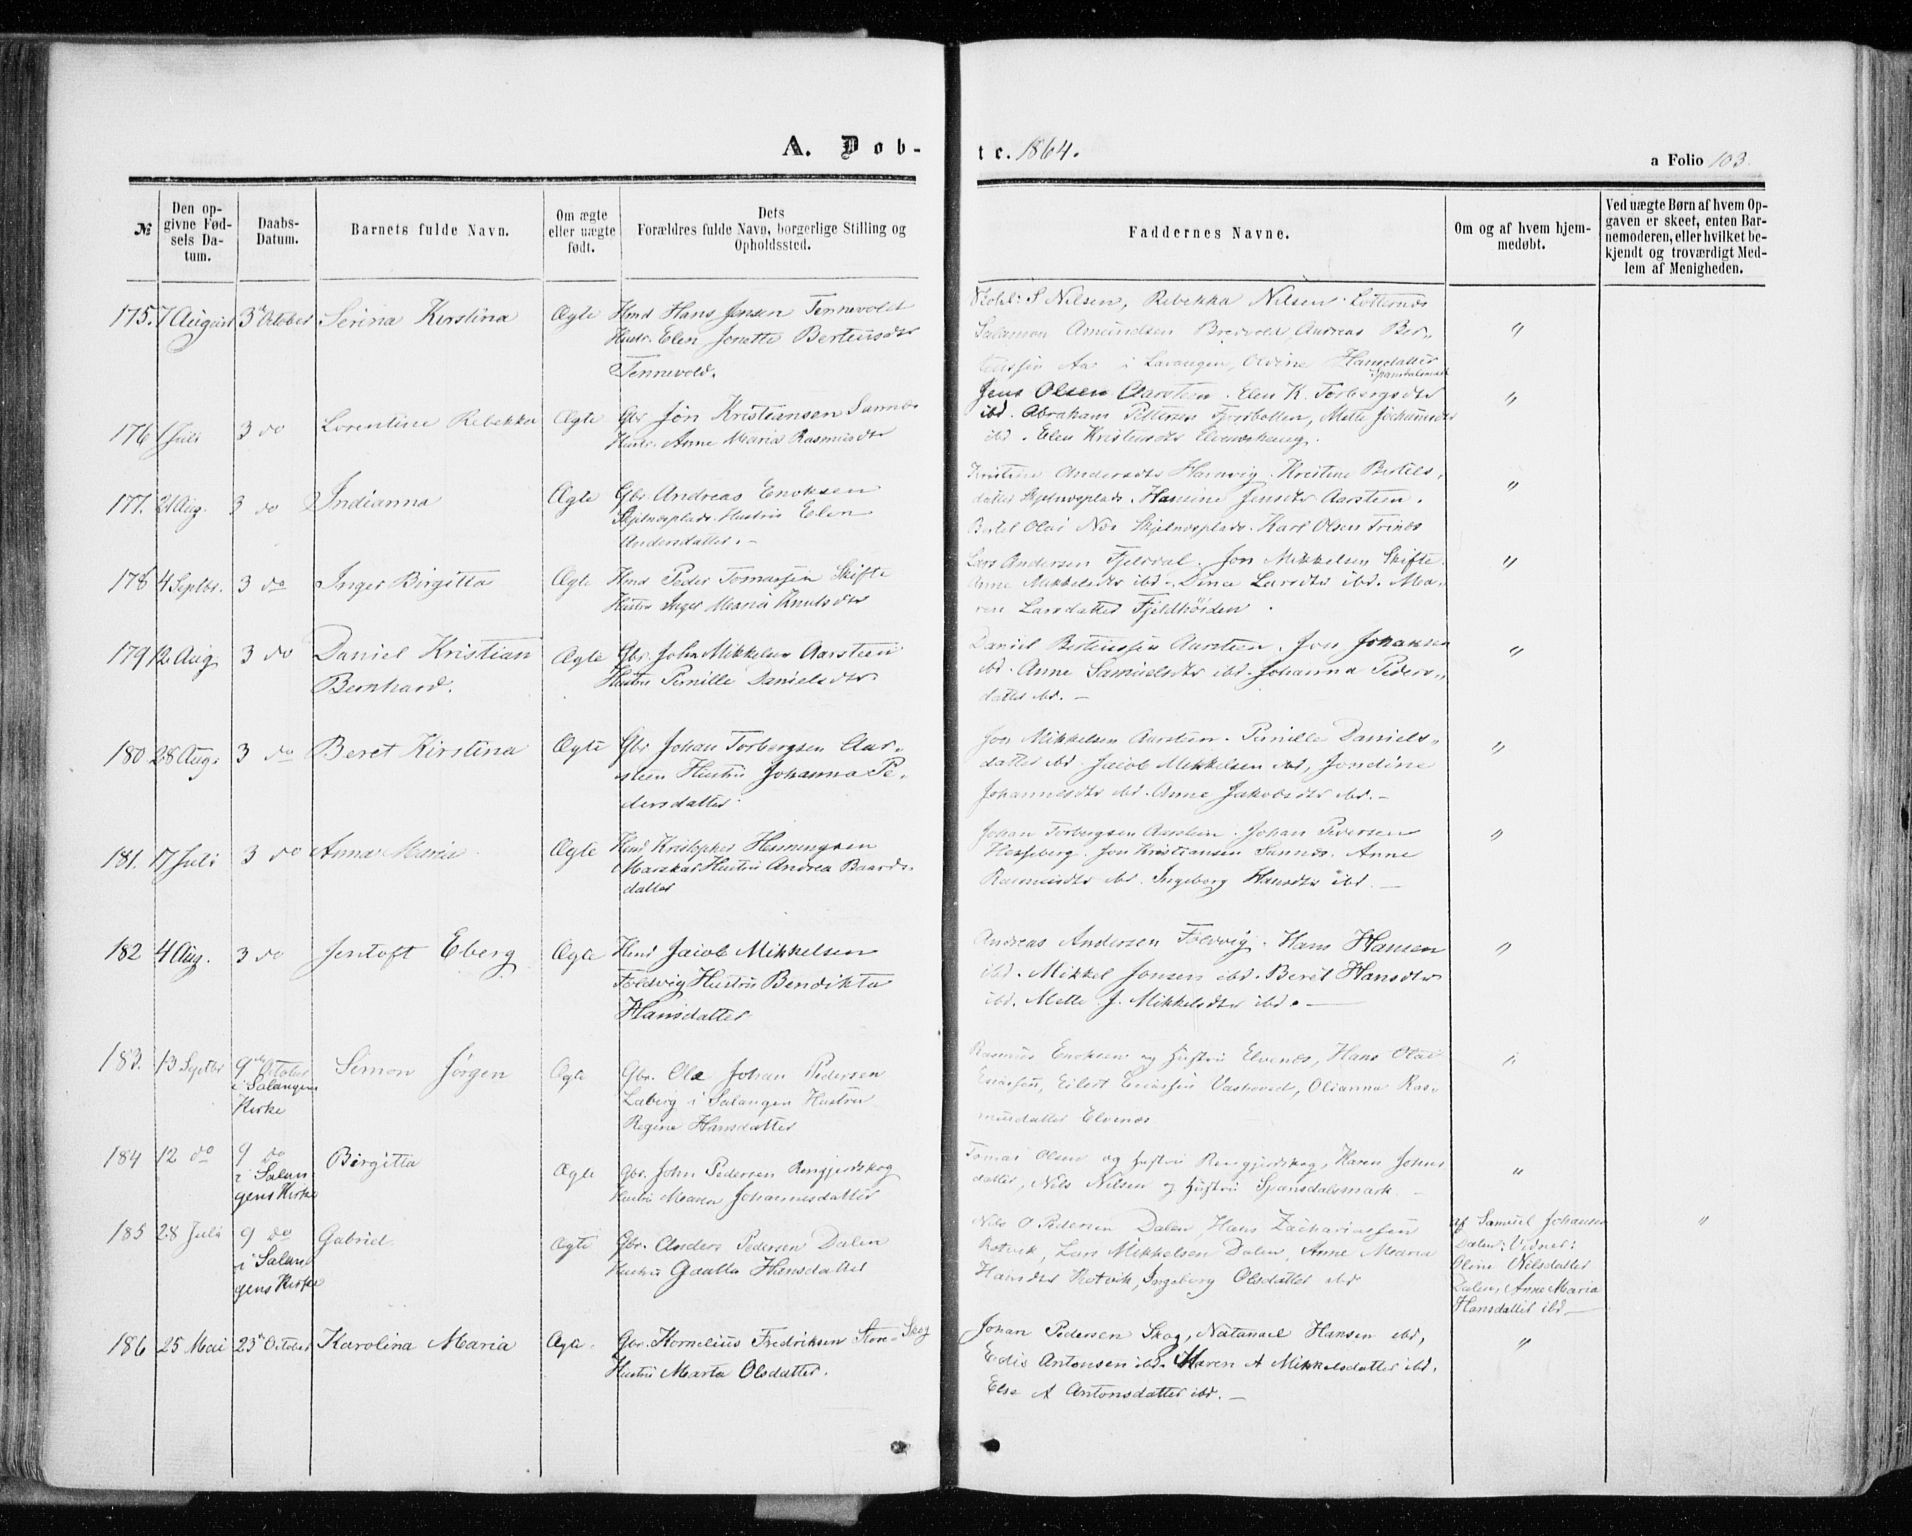 A. Døb-
te. 1864.
a Folio 103.
№
Den opgivne Fødsels Datum.
Daabs-Datum.
Barnets fulde Navn.
Om ægte eller uægte født.
Dets Forældres fulde Navn, borgerlige Stilling og Opholdssted.
Faddernes Navne.
Om og af hvem hjemmedøbt.
Ved uægte Børn af hvem Opgaven er skeet, enten Barnemoderen, eller hvilket bekjendt og troværdigt Medlem af Menigheden.
175. 7 August 3 October Serina Kirstina Ægte Hmd Hans Jensen Tennevold
Hustr. Elen Jonette Berteusdtr
Tennevold.
S Nilsen, Rebekka Nilsen
Salamon Amundsen Bredvold, Andreas Ber„
i Lavangen, Olvine Hansdatter
Spansdalsmark
"
176 1 Juli 3 do Lorentine Rebekka Ægte Gbr Jon Kristiansen Sannes
Hustr. Anne Maria Rasmusdtr
Jens Olsen Aarsteen. Elen K. Torbergsdtr
ibd. Abraham Pettersen Fossbakken, Mette Jochumsdtr
ibd. Elen Kristensdtr Elveneshaug.
"
177. 21 Aug. 3 do Indianna Ægte Gbr Andreas Enoksen
Skjelnesplads Hustru Elen
Andersdatter. –
Kristine Andersdtr Hamvig. Kirstine Bertels„
datter Skjelnesplads. Hansine Jensdtr Aarsteen.
Bertel Olai Næs Skjelnesplads. Karl Olsen
"
178 4 Septbr. 3 do Inger Birgitta Ægte Hmd Peder Tomassen Skifte
Hustru Inger Maria Knutsdtr
Lars Andersen Fjeldal. Jon Mikkelsen Skifte.
Anne Mikkelsdtr ibd. Dina Larsdtr ibd. Ma„
ren Larsdatter
"
179 12 Aug 3 do Daniel Kristian Ægte Gbr John Mikkelsen Aarsteen
Bernhard. Hustru Pernille Danielsdtr
Daniel Berteussen Aarsteen. Jon Johansen
ibd. Anne Samuelsdtr ibd. Johanna Peders„
datter ibd. –
"
180 28 Aug. 3 do Beret Kirstina Ægte Gbr Johan Torbergsen Aar„
steen Hustru Johanna Pe„
dersdatter
Jon Mikkelsen Aarsteen. Pernille Daniels„
datter ibd. Jacob Mikkelsen ibd, Jensine
Johannesdtr ibd. Anne Jakobsdtr ibd. –
"
181. 17 Juli 3 do Anna Maria Ægte Hmd Kristopher Hemmingsen
Marskar Hustru Andrea Baards„
datter
Johan Torbergsen Aarsteen. Johan Pedersen
Hesseberg. Jon Kristiansen Sannes. Anne
Rasmusdtr ibd. Ingeborg Hansdtr ibd. –
"
182 4 Aug. 3 do Jentoft Eberg Ægte Hmd Jacob Mikkelsen
Foldvig Hustru Bendikta
Hansdatter
Andreas Andersen Foldvig. Hans Hansen
ibd. Mikkel Jonsen ibd. Beret Hansdtr
ibd. Mette J. Mikkelsdtr ibd. –
"
183. 13 Septbr 9de October Simon Jørgen Ægte Gbr. Ole Johan Pedersen
i Salangens Laberg i Salangen Hustru
Kirke Regine Hansdatter
Rasmus Enoksen og Hustru Elvenes, Hans Olai
Eriassen, Eilert Eriassen Vashoved, Olianna Ras„
musdatter Elvenes
"
184 12 do 9 do Birgitta Ægte Gbr. John Pedersen
i Salan Hustru Maren Johannesdatter
gens Kirke
Tomas Olsen og Hustru, Karen Johns
datter, Nils Nilsen og Hustru Spansdalsmark –
"
185 28 Juli 9 do Gabriel Ægte Gbr. Anders Pedersen Dalen
i Salan Hustru Gaatta Hansdatter
gens Kirke
Nils O Pedersen Dalen, Hans Zachariassen
Rotvik, Lars Mikkelsen Dalen, Anne Maria
Hansdtr Rotvik, Ingeborg Olsdatter ibd
af Samuel Johansen
Dalen: Vidner:
Oline Nilsdatter
Dalen, Anne Maria
Hansdatter ibd. –
"
186 25 Mai 23 October Karolina Maria Ægte. Gbr. Kornelius Fredriksen Store-Skog
Hustru Marta Olsdatter.
Johan Pedersen Skog, Natanael Hansen ibd,
Edis Antonsen ibd. Maren A Mikkelsdatter ibd.
Else A Antonsdatter ibd. –
"